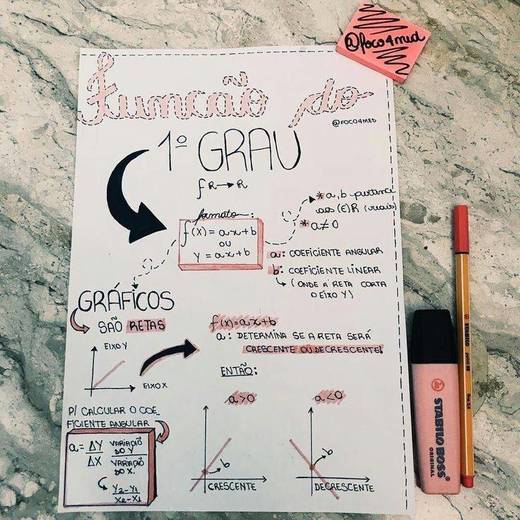 @foco4med
Função do
@FOCO4MED
1º GRAU
f R→R
formato
f(X) = ax+b
ou
Y = ax+b
* a, b pertence
aos (E)R (reais)
* a≠0
a: COEFICIENTE ANGULAR
b: COEFICIENTE LINEAR
↳ (ONDE A RETA CORTA
O EIXO Y)
GRÁFICOS
SÃO RETAS
EIXO Y
EIXO X
f(x)=ax+b
a: DETERMINA SE A RETA SERÁ
CRESCENTE OU DECRESCENTE.
ENTÃO:
P/ CALCULAR O COE
FICIENTE ANGULAR
a = ΔY VARIAÇÃO DO Y
ΔX VARIAÇÃO DO X
↳ Y2-Y1
X2-X1
a>0
b
CRESCENTE
a<0
b
DECRESCENTE
STABILO BOSS
ORIGINAL